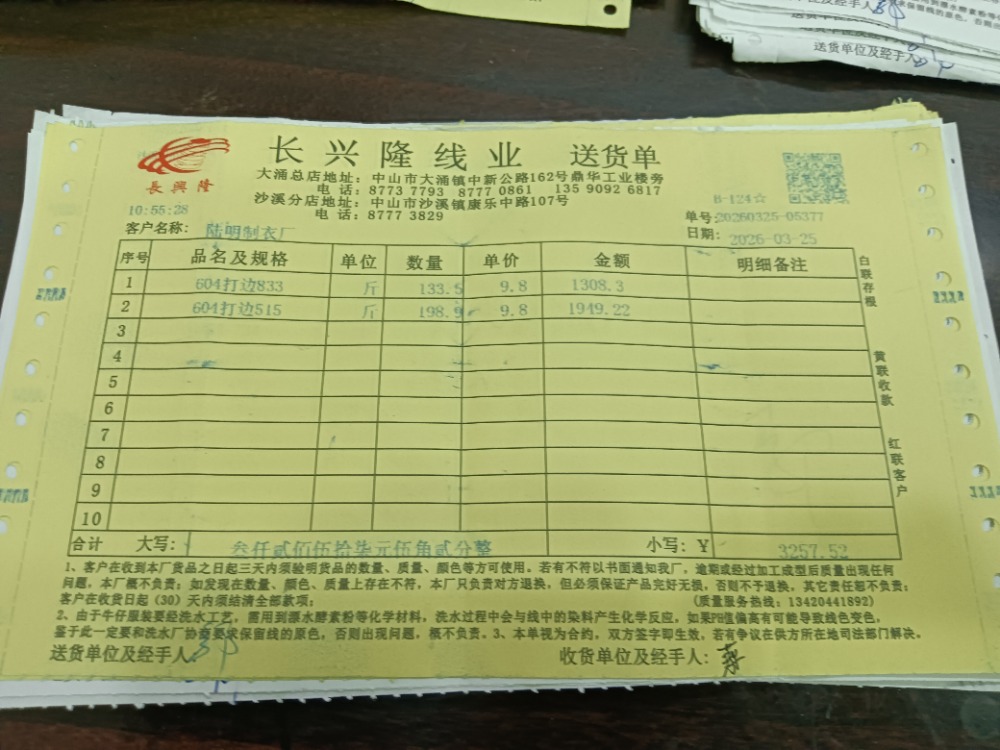 送货单位及经手人
送货单位及经手人
长兴隆线业 送货单
長興隆
大涌总店地址：中山市大涌镇中新公路162号鼎华工业楼旁
电话：8773 7793 8777 0861 135 9092 6817
沙溪分店地址：中山市沙溪镇康乐中路107号
电话：8777 3829
B-124☆
10:55:28
单号:20260325-05377
客户名称：陆明制衣厂
日期：2026-03-25
序号 品名及规格 单位 数量 单价 金额 明细备注
1 604打边833 斤 133.5 9.8 1308.3
2 604打边515 斤 198.9 9.8 1949.22
3
4
5
6
7
8
9
10
白联存根
黄联收款
红联客户
合计 大写： 叁仟贰佰伍拾柒元伍角贰分整 小写：￥ 3257.52
1、客户在收到本厂货品之日起三天内须验明货品的数量、质量、颜色等方可使用。若有不符以书面通知我厂，逾期或经过加工成型后质量出现任何
问题，本厂概不负责；如发现在数量、颜色、质量上存在不符，本厂只负责对方退换，但必须保证产品完好无损，否则不予退换，其它责任恕不负责；
客户在收货日起（30）天内须结清全部款项； (质量服务热线：13420441892)
2、由于牛仔服装要经洗水工艺，需用到漂水酵素粉等化学材料，洗水过程中会与线中的染料产生化学反应，如果PH值偏高有可能导致线色变色，
鉴于此一定要和洗水厂协商要求保留线的原色，否则出现问题，概不负责。3、本单视为合约，双方签字即生效，若有争议在供方所在地司法部门解决。
送货单位及经手人： 收货单位及经手人：